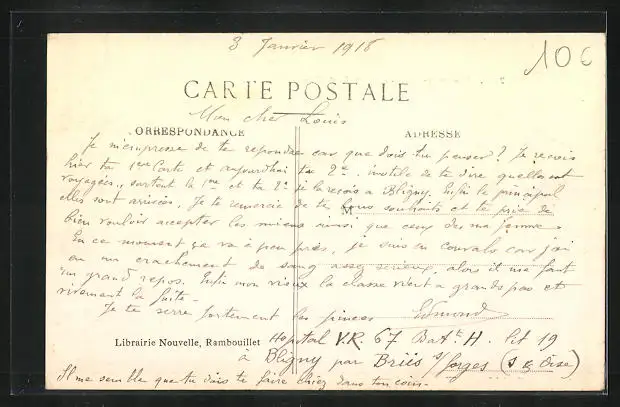 3 Janvier 1918
10€
CARTE POSTALE
Mon cher Louis
CORRESPONDANCE
ADRESSE
Je m'empresse de te repondre car que dois tu penser? Je reçois
hier ta 1ere Carte et aujourdhui ta 2e. inutile de te dire quelles ont
voyagées, surtout la 1ere et ta 2e je la reçois a Bligny. Enfin le principal
elles sont arrivées. Je te remercie de te bons souhaits et te prie de
M
bien vouloir accepter les miens ainsi que ceux de ma femme.
En ce moment ça va à peu près, je suis en convals car j'ai
eu un crachement de sang assez serieux, alors il me faut
un grand repos. Enfin mon vieux la classe vient a grands pas et
vivement la fuite.
Je te serre fortement les pinces Edmond
Librairie Nouvelle, Rambouillet
Hopital V.R. 67 Bat H. Lit 19
à Bligny par Briis s/ forges (S & Oise)
Il me semble que tu dois te faire chiez dans ton coin.